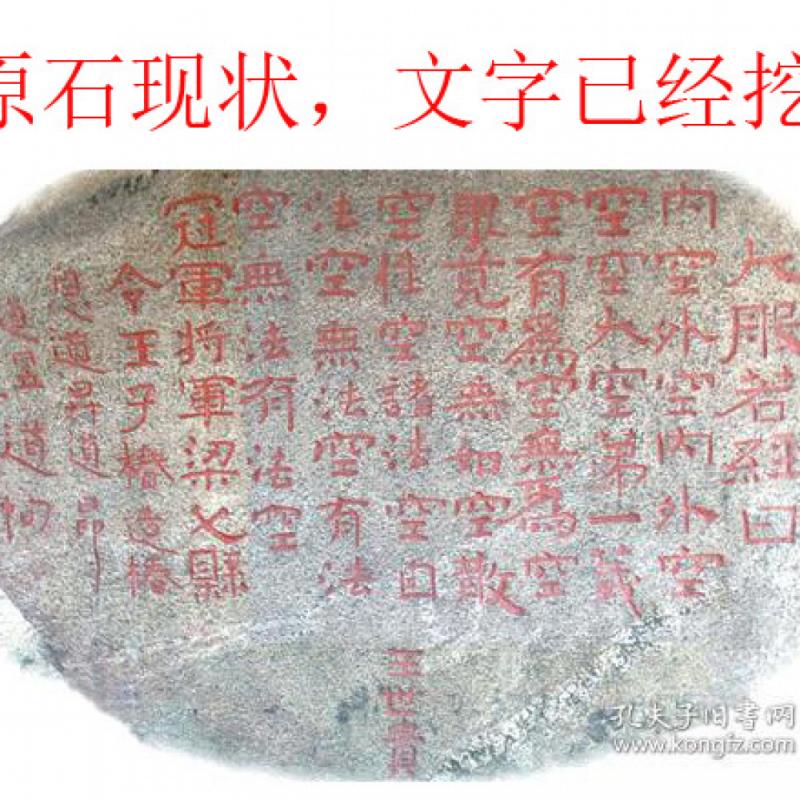 原石现状，文字已经挖
大般若經曰
内空外空内外空
空空大空第一義
空有為空無為空
竟空無如空散
空性空諸法空自
法空無法空有法
空無法有法空
冠軍将軍梁父縣
令王子椿造椿
息道昇道昂
道昱道枸
王世貴
孔夫子旧书网
www.kongfz.com